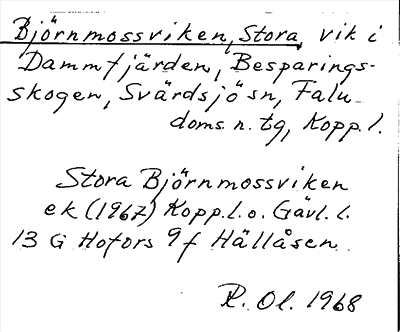 Björnmossviken, Stora, vik i
Dammfjärden, Besparings-
skogen, Svärdsjö sn, Falu
doms. n. tg, Kopp. l.
Stora Björnmossviken
ek (1967) Kopp. l. o. Gävl. l.
13 G Hofors 9 f Hällåsen
R. Ol. 1968